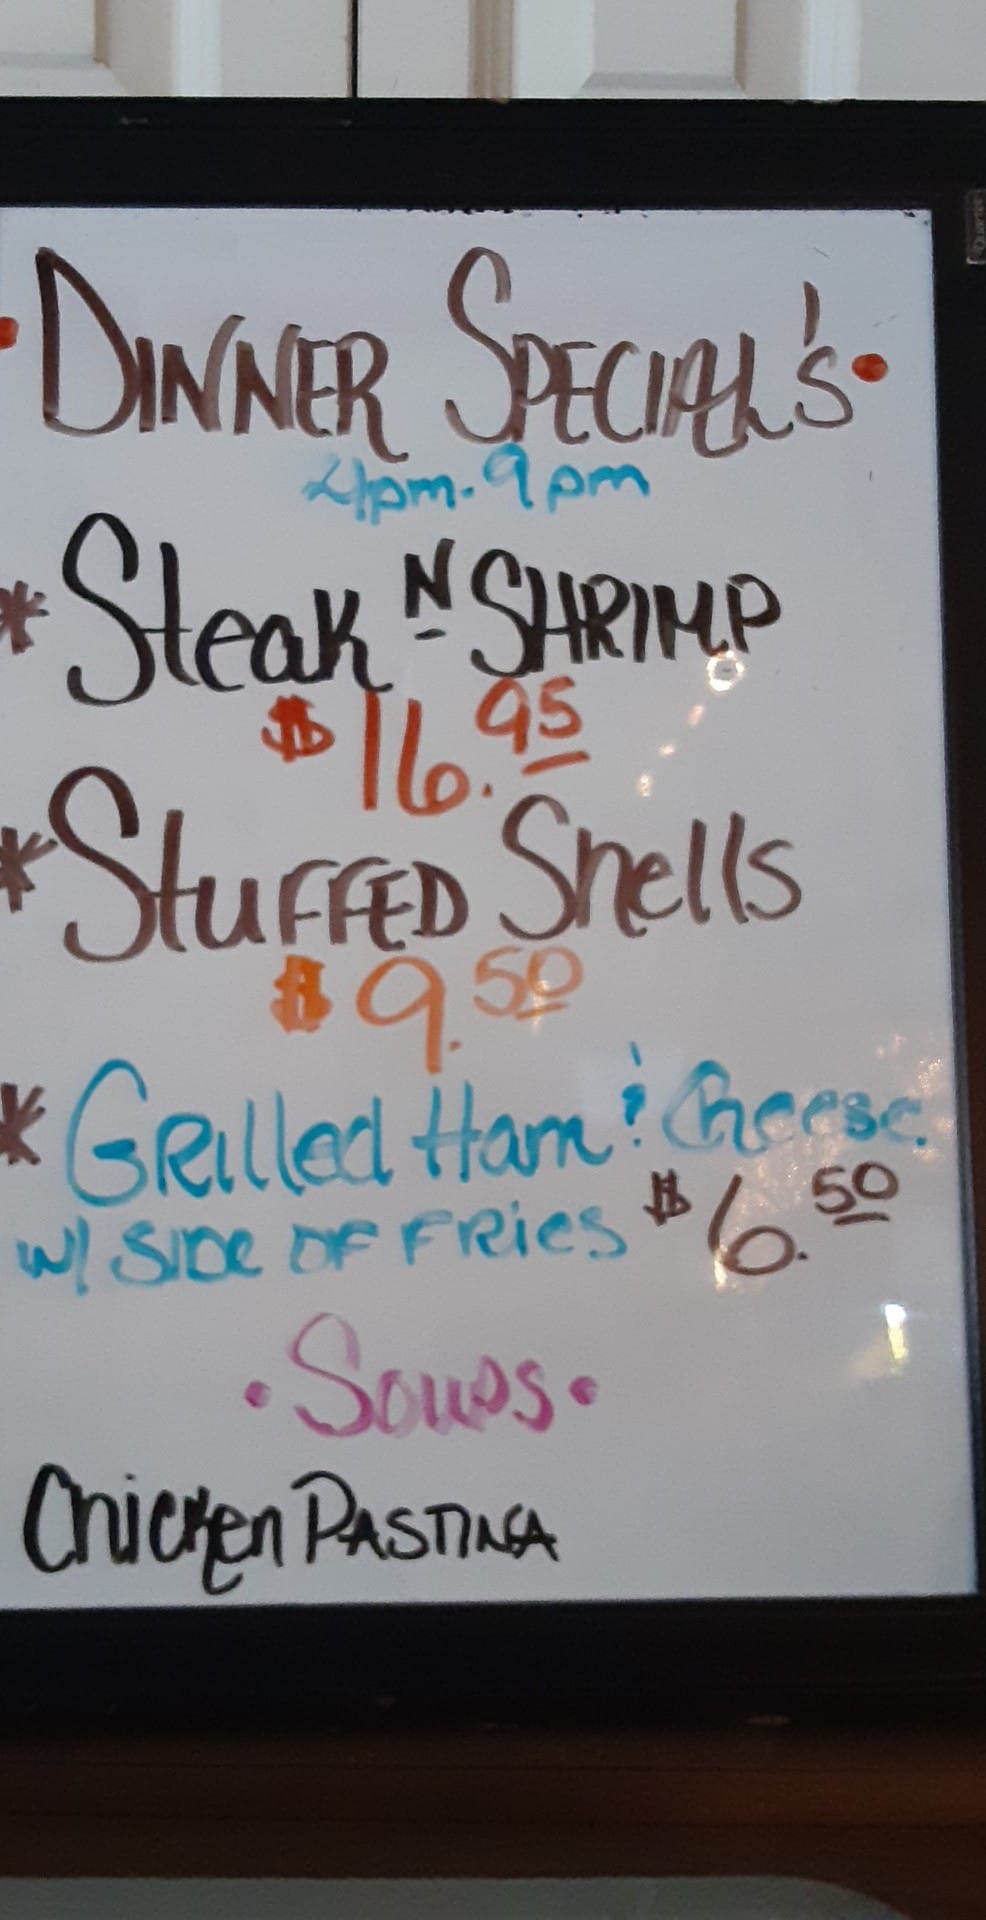 • DINNER SPECIAL'S •
4pm-9pm
* Steak N SHRIMP
$16.95
* StuFFED Shells
$9.50
* GRilled Ham & Cheese
w/ SIDE OF FRies $6.50
• Soups •
Chicken PASTINA